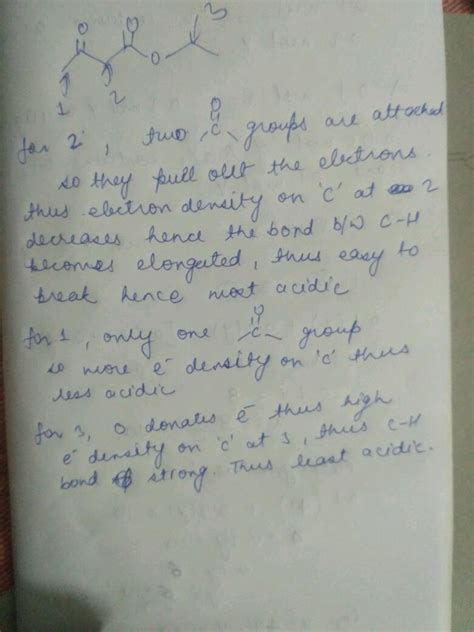 O O 3
O
1 2
O
for 2, two C groups are attached
so they pull out the electrons.
thus electron density on 'C' at 2
decreases hence the bond b/w C-H
becomes elongated, thus easy to
break hence most acidic
O
for 1, only one C group
so more e⁻ density on 'c' thus
less acidic
for 3, O donates e⁻ thus high
e⁻ density on 'c' at 3, thus C-H
bond strong. Thus least acidic.